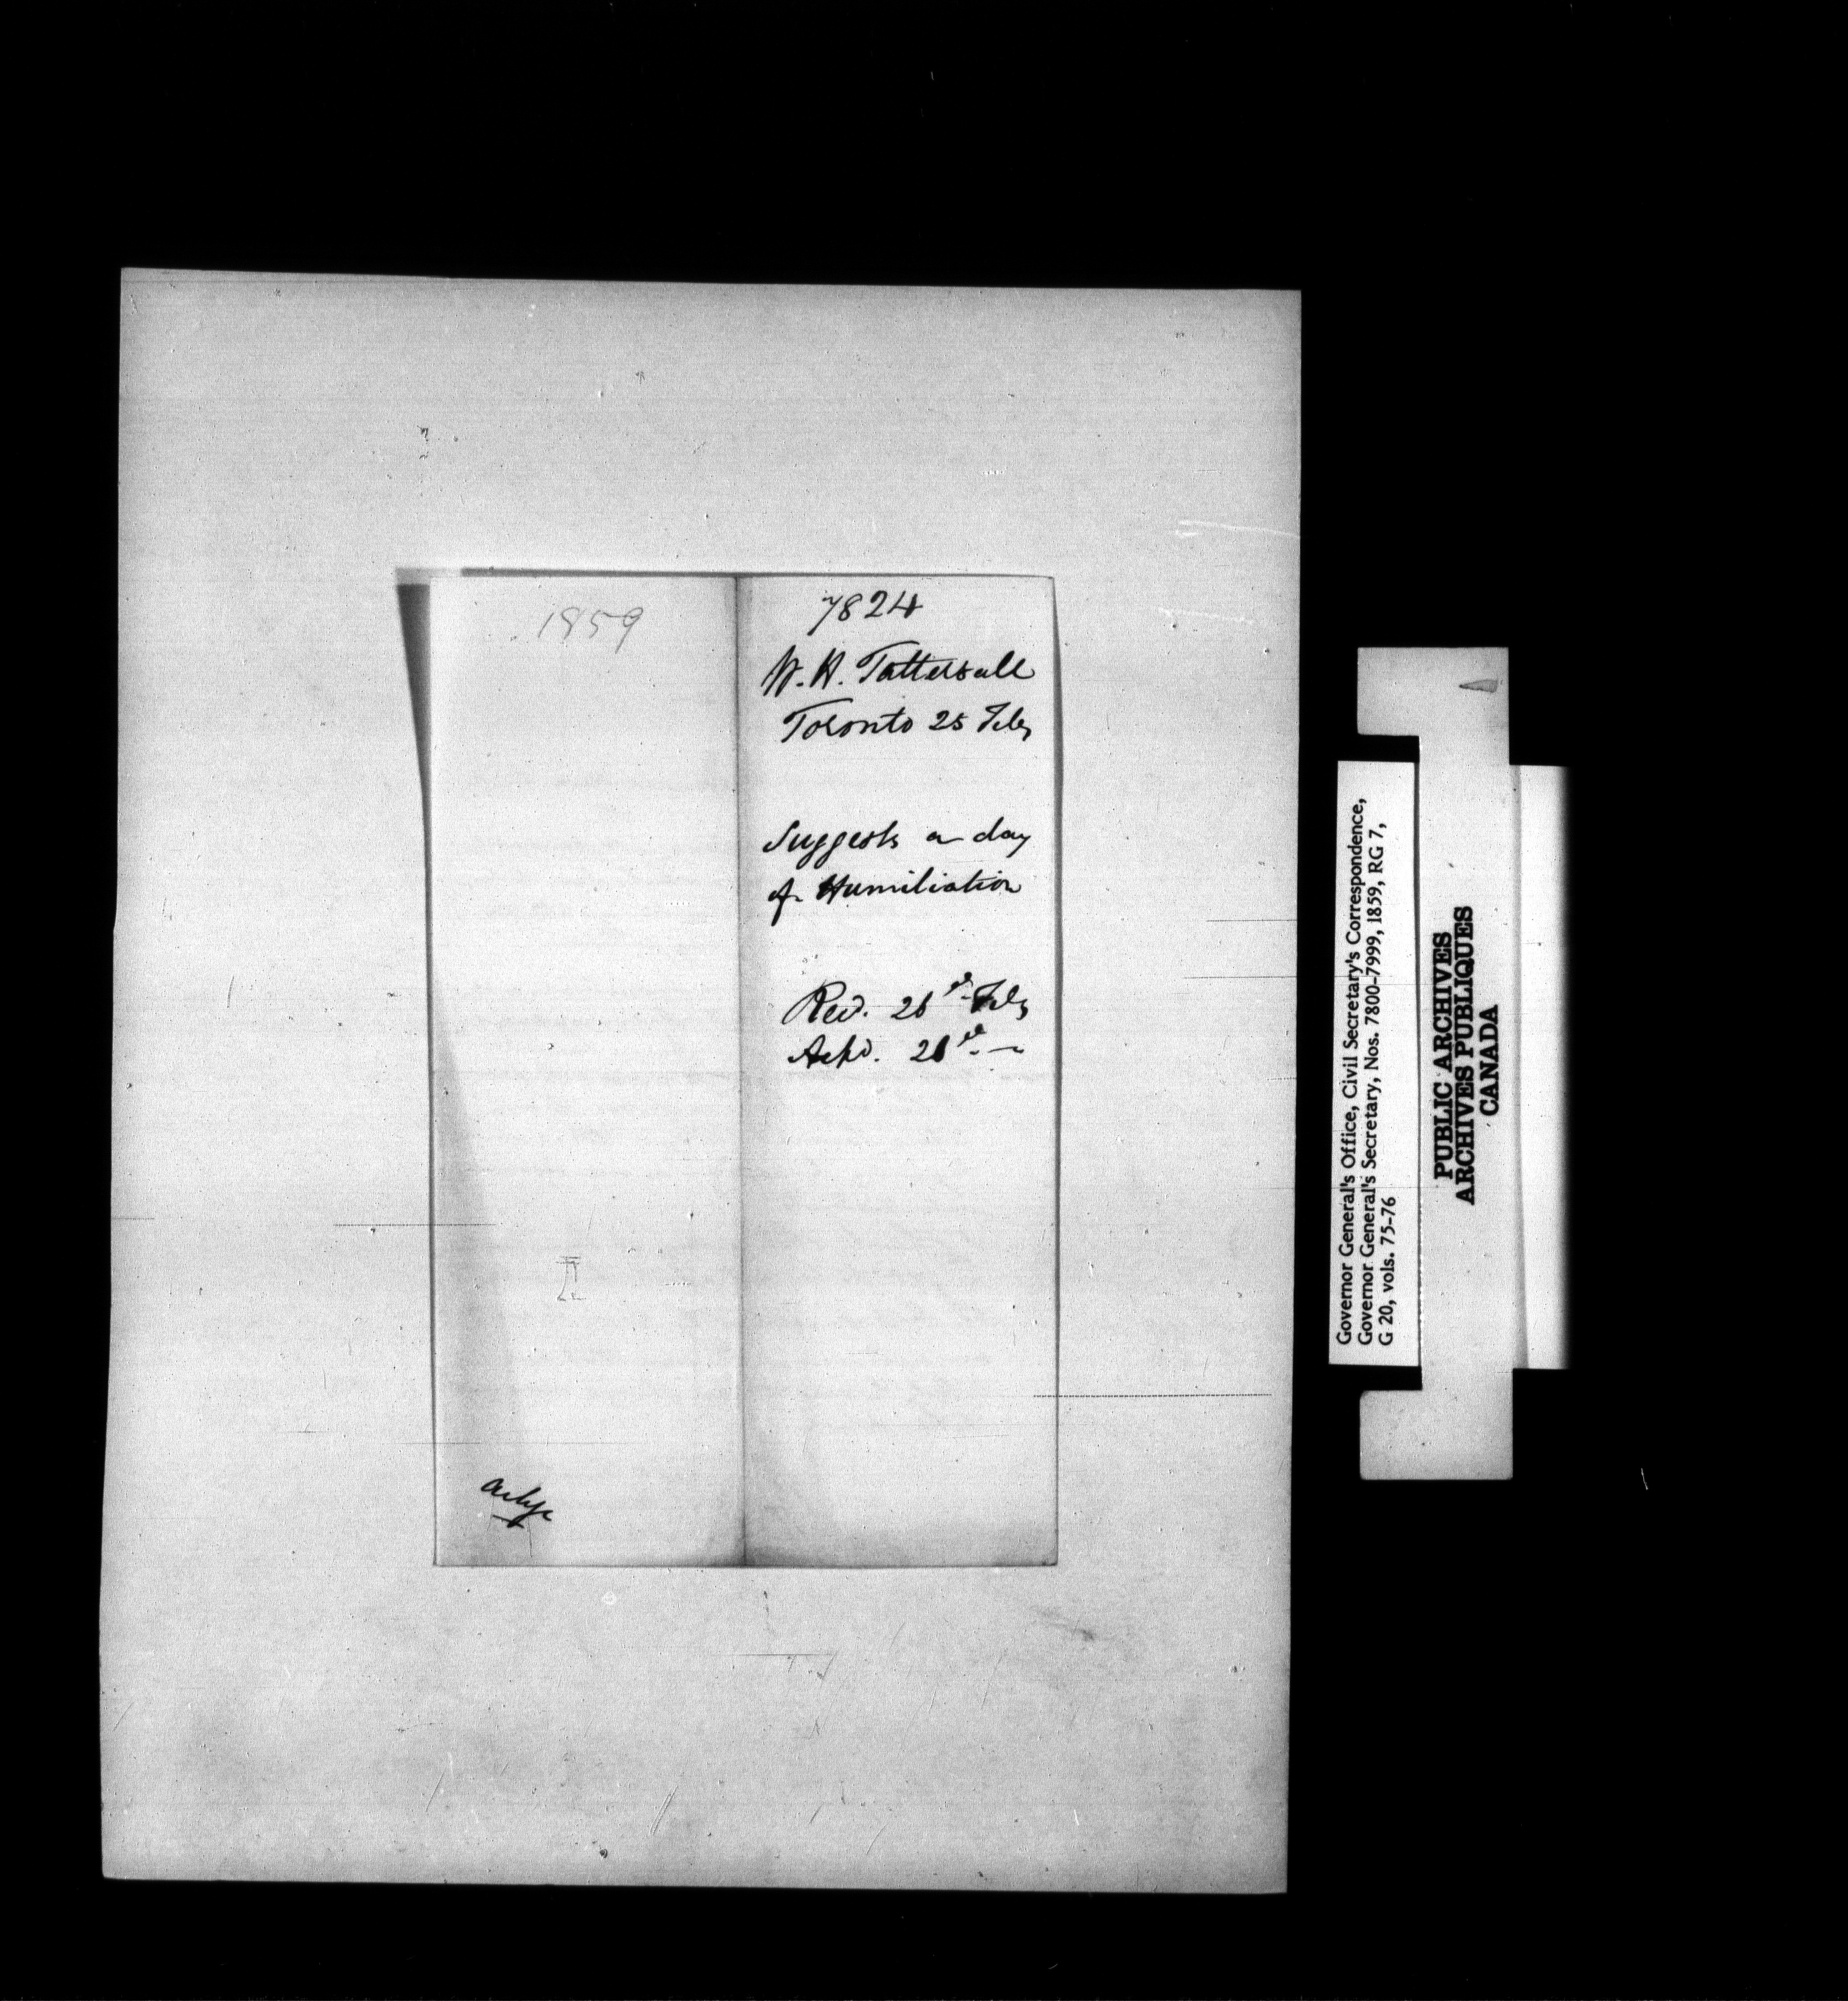 1859
7824
W. H. Tattersall
Toronto 25 Feby
Suggests a day
of Humiliation
Recd. 26th Feby
Ackd. 26th. —
Ackge
Governor General's Office, Civil Secretary's Correspondence,
Governor General's Secretary, Nos. 7800-7999, 1859, RG 7,
G 20, vols. 75-76
PUBLIC ARCHIVES
ARCHIVES PUBLIQUES
CANADA